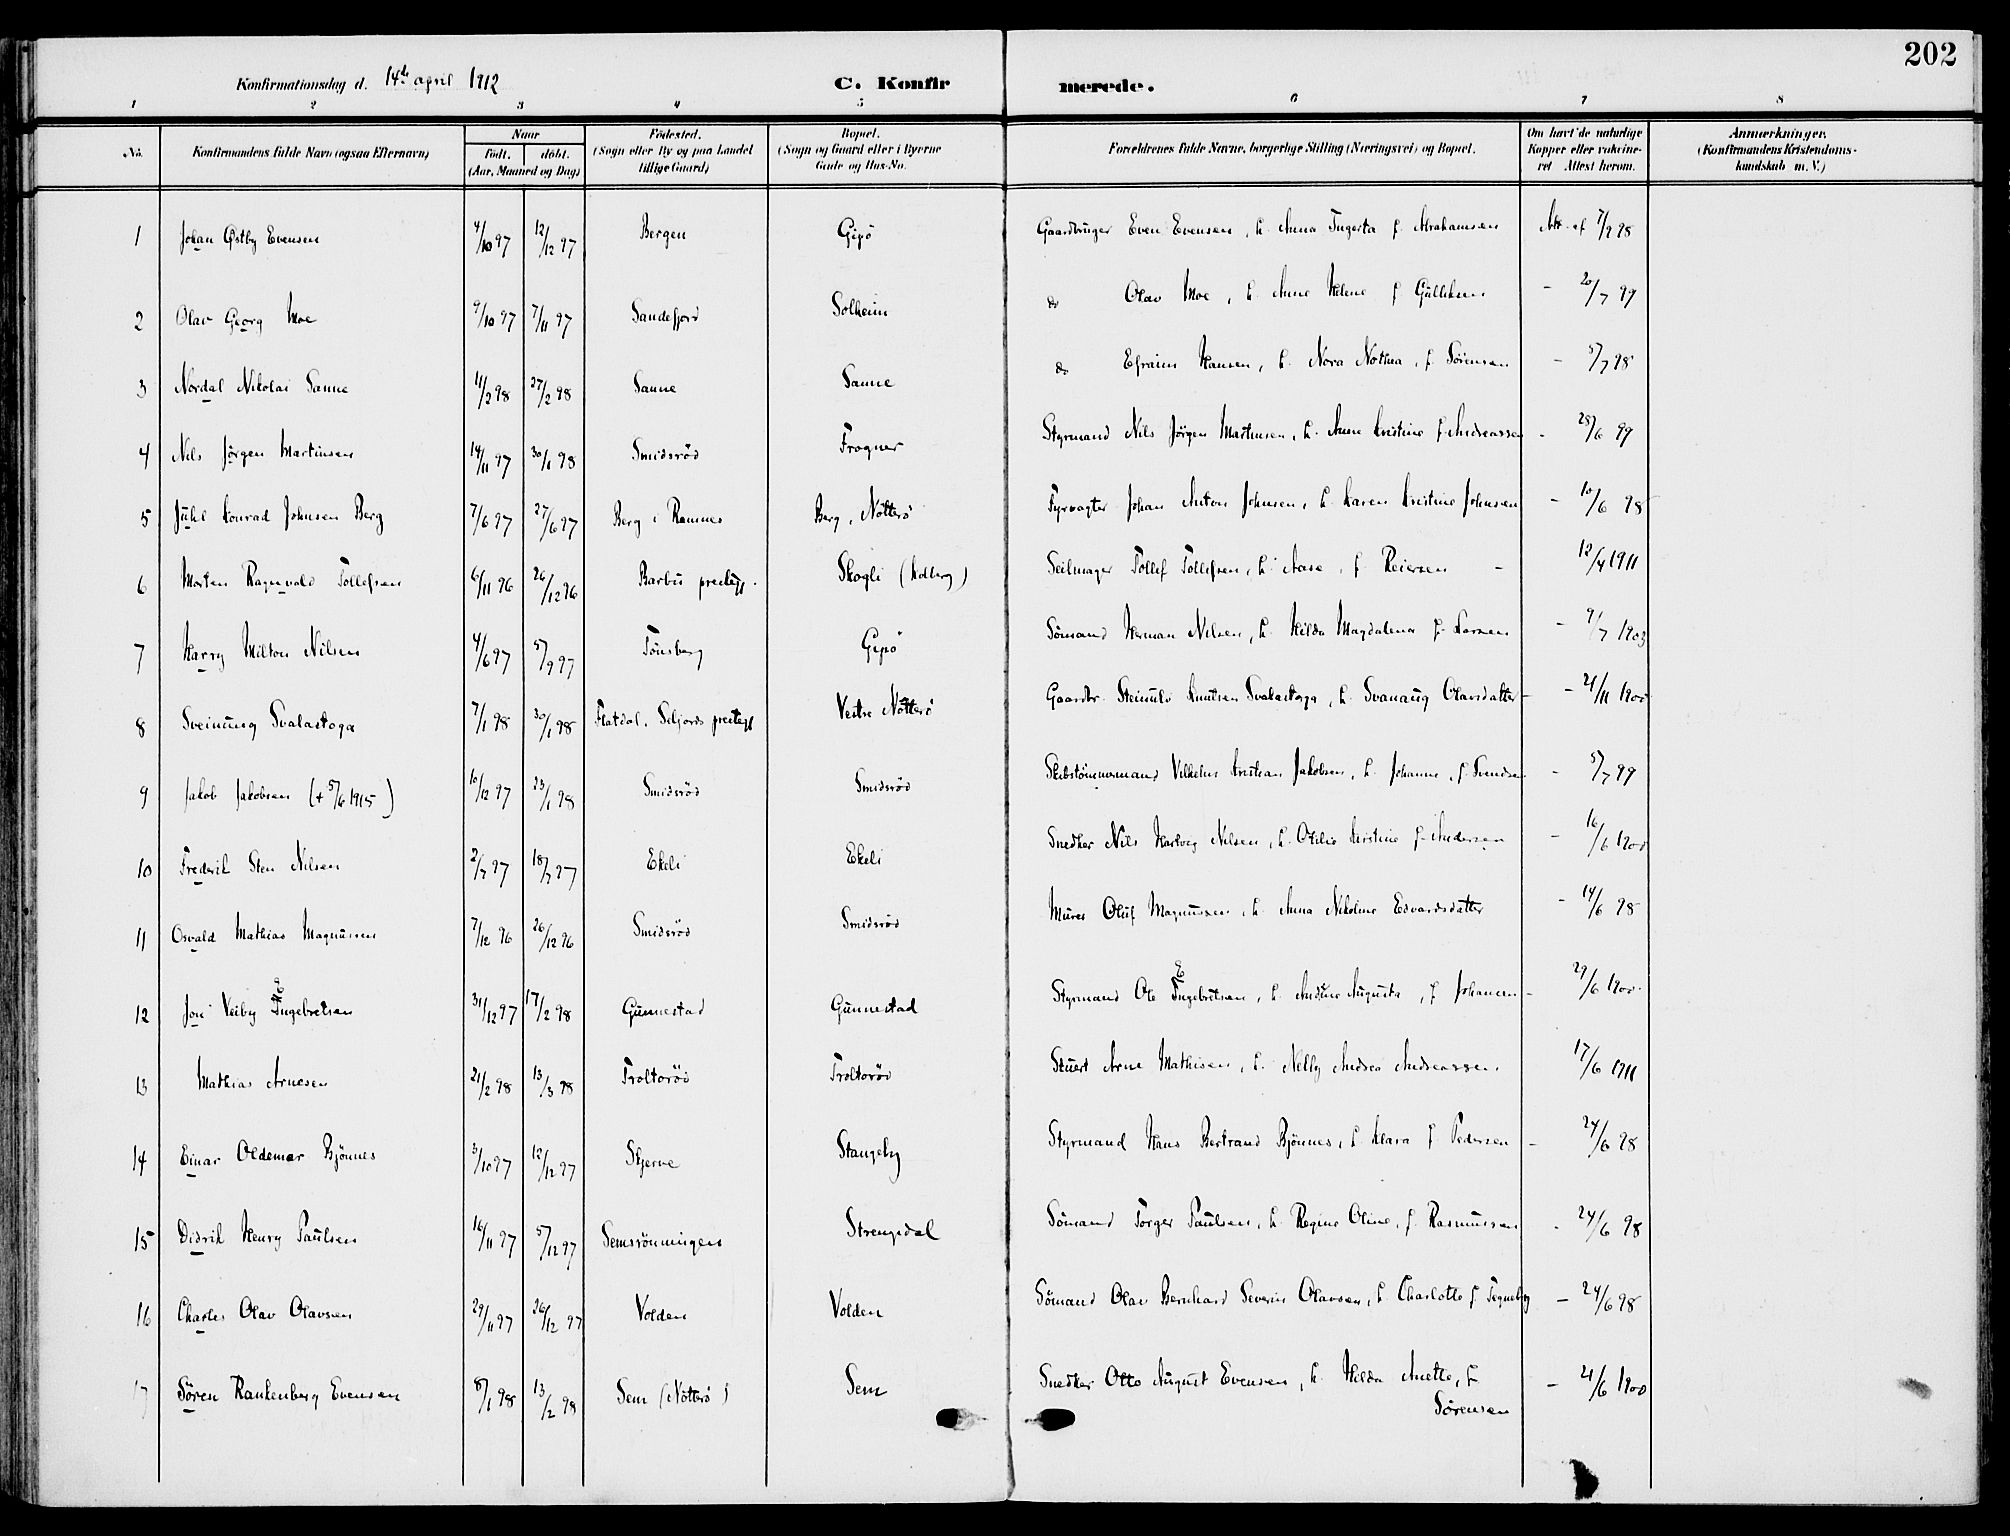 202
Konfirmationsdag d. 14de april 1912
C. Konfirmerede.
1 2 3 4 5 6 7 8
No. | Konfirmandens fulde Navn (ogsaa Efternavn) | Naar født. døbt. (Aar, Maaned og Dag) | Fødested. (Sogn eller By og paa Landet tillige Gaard) | Bopæl. (Sogn og Gaard eller i Byerne Gade og Hus-No. | Forældrenes fulde Navne, borgerlige Stilling (Næringsvei) og Bopæl. | Om havt de naturlige Kopper eller vakcineret Attest herom. | Anmærkninger. (Konfirmandens Kristendomskundskab m. V.)
1 Johan Østby Evensen 4/10 97 12/12 97 Bergen Gipö Gaardbruger Even Evensen, h. Anna Ingerta f. Abrahamsen Att. af 7/9 98
2 Olav Georg Moe 9/10 97 7/11 97 Sandefjord Solheim do Olav Moe, h. Anne Helene f Gulliksen - 20/7 99
3 Nordal Nikolai Sanne 11/2 98 27/2 98 Sanne Sanne do Efraim Hansen, h. Nora Nathea, f. Sörensen - 5/7 98
4 Nils Jörgen Martinsen 14/11 97 30/1 98 Smidsröd Frogner Styrmand Nils Jörgen Martinsen, h. Anne Kristine f. Andreassen - 28/6 99
5 Juhl Konrad Johnsen Berg 7/6 97 27/6 97 Berg i Ramnes Berg, Nötterö Fyrvagter Johan Anton Johnsen, h. Karen Kristine Johnsen - 10/6 98
6 Morten Ragnvald Tollefsen 6/11 96 26/12 96 Barbu prestegj. Skogli (Kolberg) Seilmager Tollef Tollefsen, h. Aase, f. Reiersen - 12/4 1911
7 Harry Milton Nilsen 4/6 97 5/9 97 Tönsberg Gipö Sömand Herman Nilsen, h. Hilda Magdalena f. Larsen - 9/7 1903
8 Sveinung Svalastoga 7/1 98 30/1 98 Flatdal, Seljords prestegj Vestre Nötterö Gaardbr. Steinulv Knutsen Svalastoga, h. Svanaug Olavsdatter - 21/11 1900
9 Jakob Jakobsen (+ 5/6 1915) 10/12 97 23/1 98 Smidsröd Smidsröd Skibstömmermand Vilhelm Kristian Jakobsen, h. Johanne, f. Svendsen - 5/7 99
10 Frederik Sten Nilsen 2/7 97 18/7 97 Ekeli Ekeli Snedker Nils Hartvig Nilsen, h. Otilie Kristine f. Andersen - 16/6 1900
11 Osvald Mathias Magnussen 7/12 96 26/12 96 Smidsröd Smidsröd Murer Oluf Magnussen, h. Anna Nikoline Edvardsdatter - 14/6 98
12 Jon Veiby Engebretsen 31/12 97 17/2 98 Gunnestad Gunnestad Styrmand Ole Engebretsen, h. Andine Augusta, f. Johansen - 29/6 1900
13 Mathias Arnesen 21/2 98 13/3 98 Troltoröd Troltoröd Stuert Arne Mathisen, h. Nelly Andrea Andreassen. 17/6 1911
14 Einar Oldemar Bjönnes 3/10 97 12/12 97 Skjerve Stangeby Styrmand Hans Bertrand Bjönnes, h. Klara f Pedersen - 24/6 98
15 Didrik Henry Paulsen 16/11 97 5/12 97 Semsrönningen Strengsdal Sömand Torger Paulsen, h. Regine Oline, f. Rasmussen - 24/6 98
16 Charles Olav Olavsen 29/11 97 26/12 97 Volden Volden Sömand Olav Bernhard Severin Olavsen, h. Charlotte f. Tegneby - 24/6 98
17 Sören Rankenberg Evensen 8/1 98 13/2 98 Sem (Nötterö) Sem Snedker Otto August Evensen, h. Hilda Anette, f. Sörensen - 21/6 1900